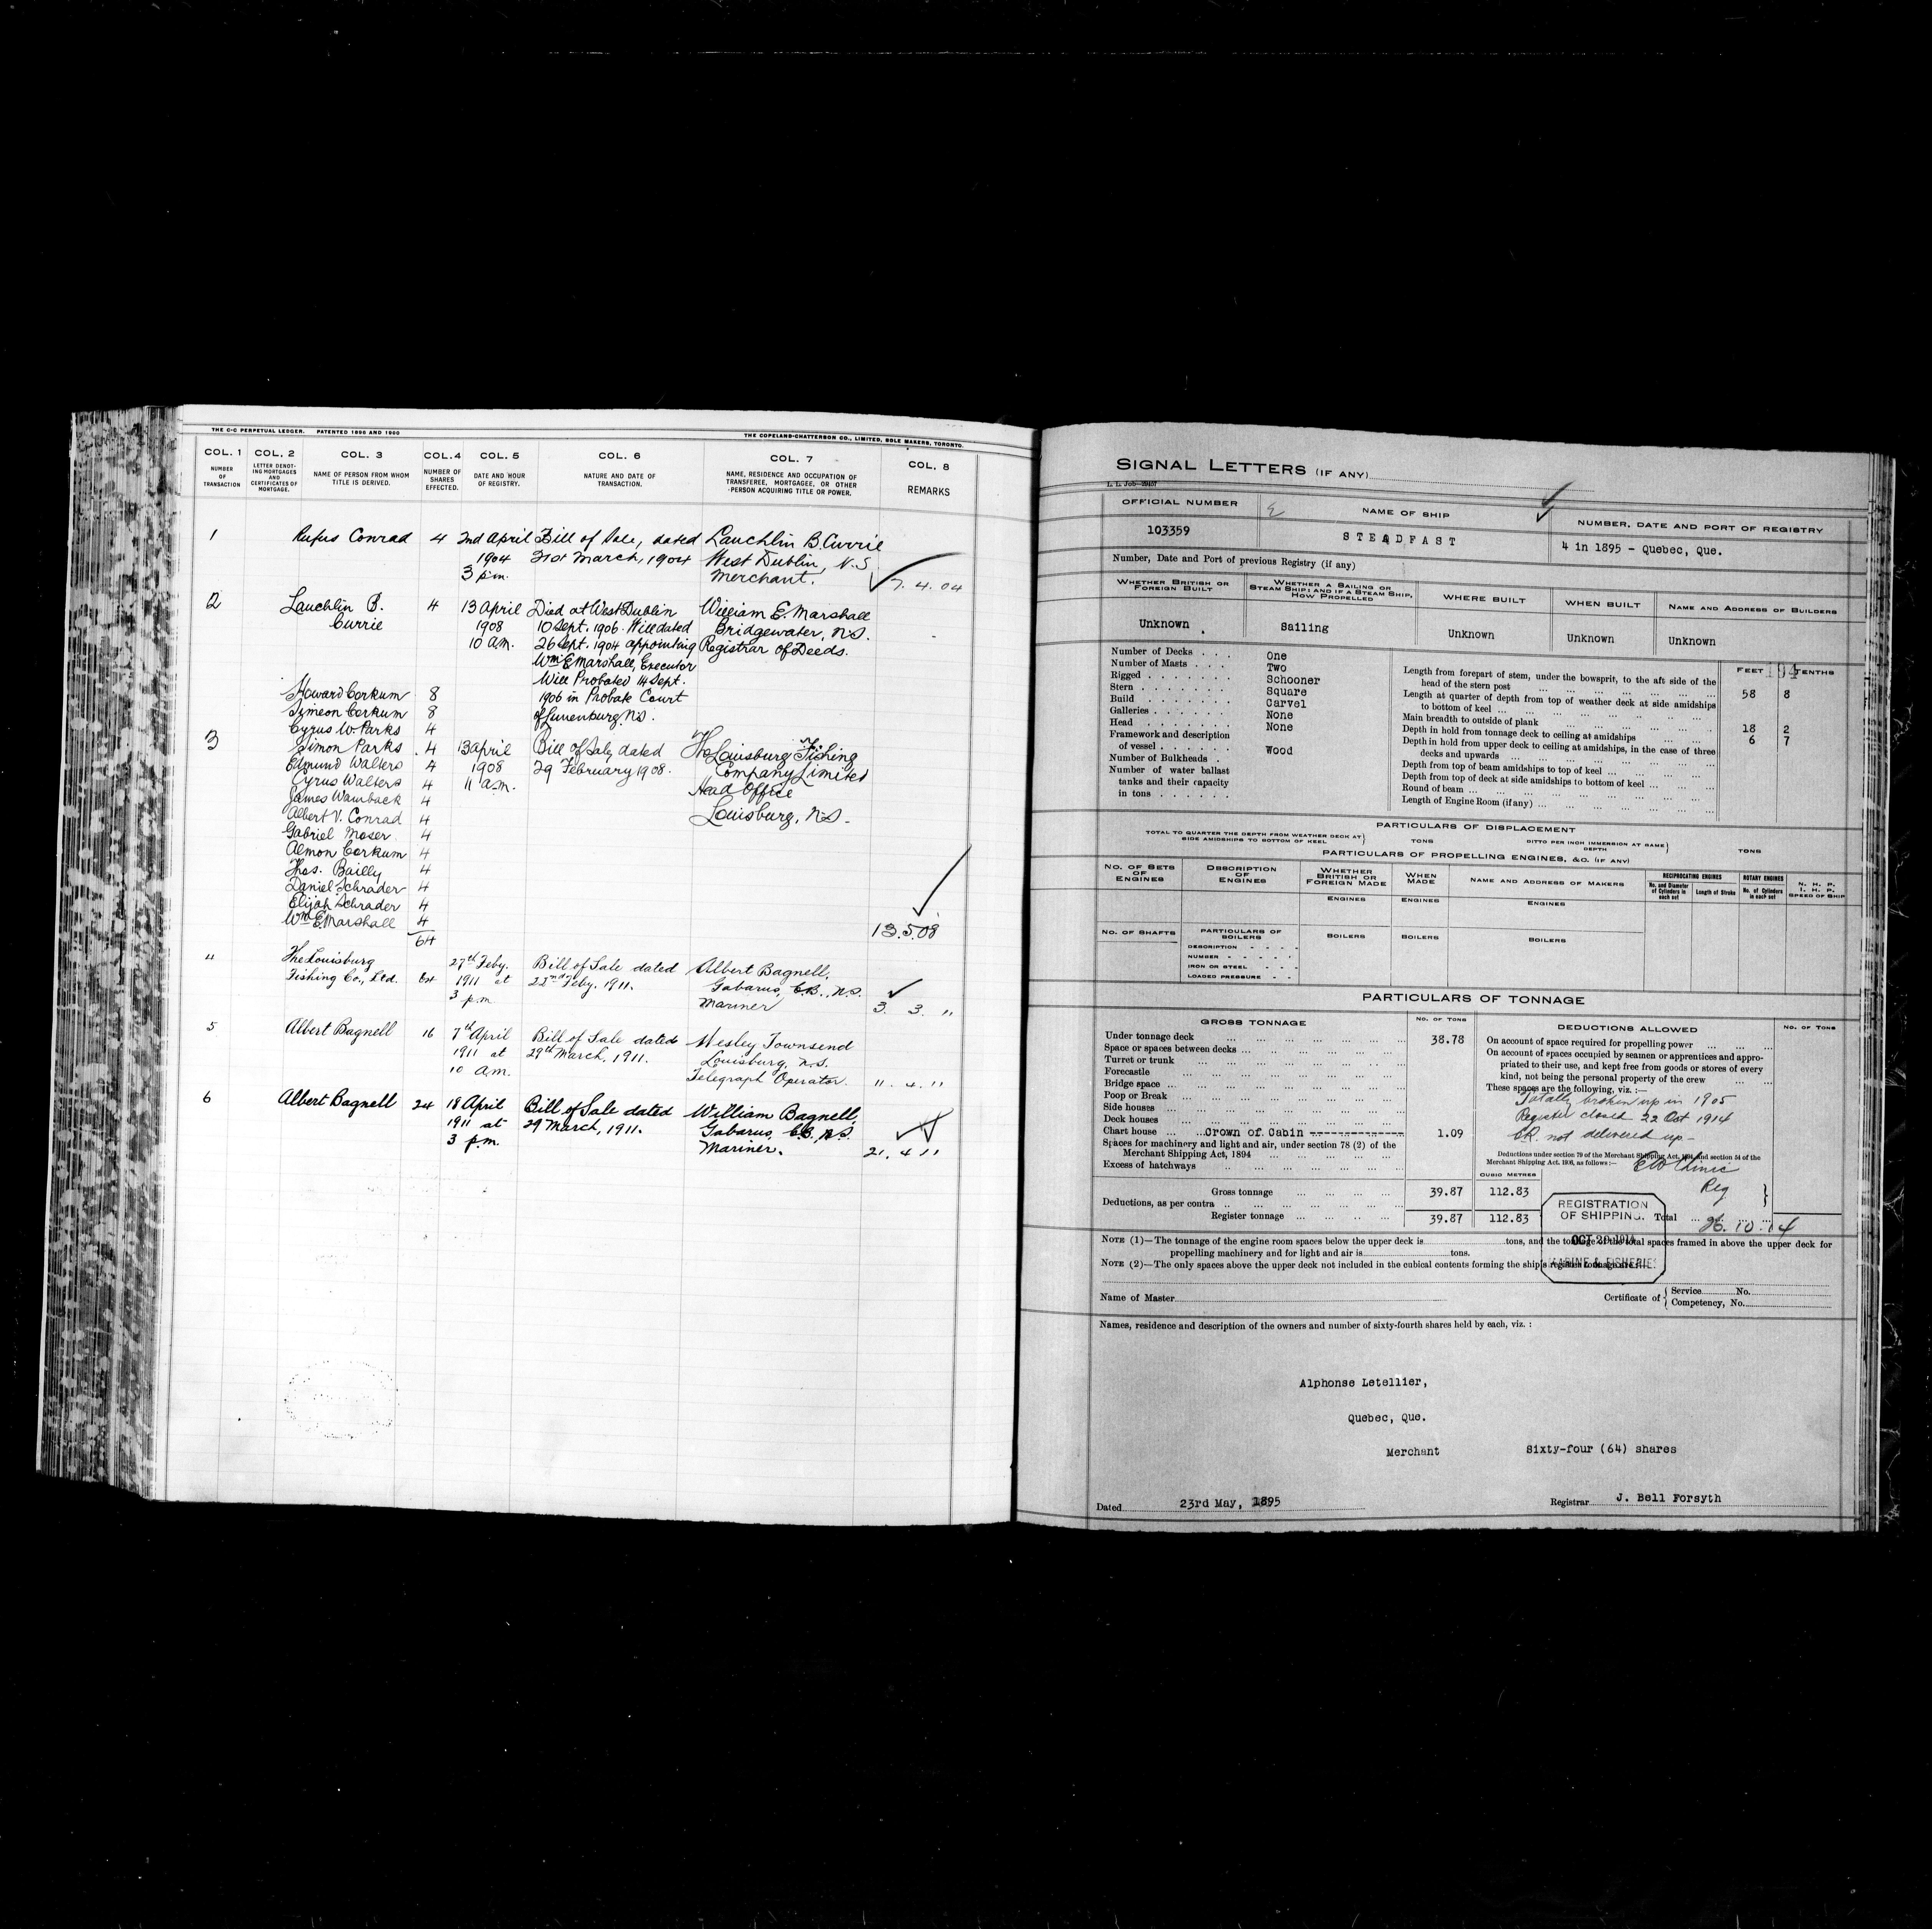 THE C-C PERPETUAL LEDGER. PATENTED 1896 AND 1900
THE COPELAND-CHATTERSON CO., LIMITED, SOLE MAKERS, TORONTO.
COL. 1 COL. 2 COL. 3 COL. 4 COL. 5 COL. 6 COL. 7 COL. 8
NUMBER OF TRANSACTION
LETTER DENOTING MORTGAGES AND CERTIFICATES OF MORTGAGE.
NAME OF PERSON FROM WHOM TITLE IS DERIVED.
NUMBER OF SHARES EFFECTED.
DATE AND HOUR OF REGISTRY.
NATURE AND DATE OF TRANSACTION.
NAME, RESIDENCE AND OCCUPATION OF TRANSFEREE, MORTGAGEE, OR OTHER PERSON ACQUIRING TITLE OR POWER.
REMARKS
1 Rufus Conrad 4 2nd April Bill of Sale, dated Lauchlin B. Currie
1904 31st March, 1904 West Dublin, N.S.
3 p.m. Merchant. 7.4.04
2 Lauchlin B. 4 13 April Died at West Dublin William E. Marshall
Currie 1908 10 Sept. 1906. Will dated Bridgewater, N.S.
10 a.m. 26 Sept. 1904 appointing Registrar of Deeds.
Wm E Marshall, Executor
Will Probated 14 Sept.
Howard Corkum 8 1906 in Probate Court
Simeon Corkum 8 of Lunenburg, N.S.
Cyrus W. Parks 4
3 Simon Parks 4 13 April Bill of Sale, dated The Louisburg Fishing
Edmund Walters 4 1908 29 February 1908. Company Limited
Cyrus Walters 4 11 a.m. Head Office
James Wamback 4
Albert V. Conrad 4 Louisburg, N.S.
Gabriel Moser 4
Almon Corkum 4
Thos. Bailly 4
Daniel Schrader 4
Elijah Schrader 4
Wm E. Marshall 4 13.5.08
64
4 The Louisburg 27th Feby. Bill of Sale dated Albert Bagnell,
Fishing Co., Ltd. 64 1911 at 22nd Feby. 1911. Gabarus, C.B., N.S.
3 p.m. Mariner 3. 3. 11
5 Albert Bagnell 16 7th April Bill of Sale dated Wesley Townsend
1911 at 29th March, 1911. Louisburg, N.S.
10 a.m. Telegraph Operator. 11. 4. 11
6 Albert Bagnell 24 18 April Bill of Sale dated William Bagnell,
1911 at 29 March, 1911. Gabarus, C.B., N.S.
3 p.m. Mariner. 21. 4 11
SIGNAL LETTERS (IF ANY)
OFFICIAL NUMBER NAME OF SHIP NUMBER, DATE AND PORT OF REGISTRY
103359 STEADFAST 4 in 1895 - Quebec, Que.
Number, Date and Port of previous Registry (if any)
WHETHER BRITISH OR FOREIGN BUILT
WHETHER A SAILING OR STEAM SHIP; AND IF A STEAM SHIP, HOW PROPELLED
WHERE BUILT WHEN BUILT NAME AND ADDRESS OF BUILDERS
Unknown Sailing Unknown Unknown Unknown
Number of Decks . . . One
Number of Masts . . . Two
Rigged . . . Schooner
Stern . . . Square
Build . . . Carvel
Galleries . . . None
Head . . . None
Framework and description
of vessel . . . Wood
Number of Bulkheads .
Number of water ballast
tanks and their capacity
in tons . . .
FEET TENTHS
194
Length from forepart of stem, under the bowsprit, to the aft side of the
head of the stern post 58 8
Length at quarter of depth from top of weather deck at side amidships
to bottom of keel
Main breadth to outside of plank 18 2
Depth in hold from tonnage deck to ceiling at amidships 6 7
Depth in hold from upper deck to ceiling at amidships, in the case of three
decks and upwards
Depth from top of beam amidships to top of keel
Depth from top of deck at side amidships to bottom of keel
Round of beam
Length of Engine Room (if any)
PARTICULARS OF DISPLACEMENT
TOTAL TO QUARTER THE DEPTH FROM WEATHER DECK AT SIDE AMIDSHIPS TO BOTTOM OF KEEL } TONS DITTO PER INCH IMMERSION AT SAME DEPTH } TONS
PARTICULARS OF PROPELLING ENGINES, &C. (IF ANY)
NO. OF SETS OF ENGINES
DESCRIPTION OF ENGINES
WHETHER BRITISH OR FOREIGN MADE
WHEN MADE
NAME AND ADDRESS OF MAKERS
RECIPROCATING ENGINES ROTARY ENGINES
No. and Diameter of Cylinders in each set
Length of Stroke
No. of Cylinders in each set
N. H. P.
I. H. P.
SPEED OF SHIP
ENGINES ENGINES ENGINES
NO. OF SHAFTS PARTICULARS OF BOILERS BOILERS BOILERS BOILERS
DESCRIPTION
NUMBER
IRON OR STEEL
LOADED PRESSURE
PARTICULARS OF TONNAGE
GROSS TONNAGE NO. OF TONS DEDUCTIONS ALLOWED NO. OF TONS
Under tonnage deck 38.78
Space or spaces between decks
Turret or trunk
Forecastle
Bridge space
Poop or Break
Side houses
Deck houses
Chart house Crown of Cabin 1.09
Spaces for machinery and light and air, under section 78 (2) of the
Merchant Shipping Act, 1894
Excess of hatchways
CUBIC METRES
Gross tonnage 39.87 112.83
Deductions, as per contra
Register tonnage 39.87 112.83
On account of space required for propelling power
On account of spaces occupied by seamen or apprentices and appro-
priated to their use, and kept free from goods or stores of every
kind, not being the personal property of the crew
These spaces are the following, viz. :—
Totally broken up in 1905
Register closed 22 Oct 1914
CR. not delivered up -
Deductions under section 79 of the Merchant Shipping Act, 1894, and section 54 of the
Merchant Shipping Act, 1906, as follows :—
Reg
Total
26. 10. 14
REGISTRATION
OF SHIPPING.
OCT 29 1914
MARINE & FISHERIES
NOTE (1)—The tonnage of the engine room spaces below the upper deck is tons, and the tonnage of the total spaces framed in above the upper deck for
propelling machinery and for light and air is tons.
NOTE (2)—The only spaces above the upper deck not included in the cubical contents forming the ship's register tonnage are :—
Name of Master Certificate of { Service No.
Competency, No.
Names, residence and description of the owners and number of sixty-fourth shares held by each, viz. :
Alphonse Letellier,
Quebec, Que.
Merchant Sixty-four (64) shares
Dated 23rd May, 1895 Registrar J. Bell Forsyth